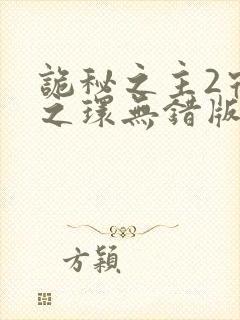 詭秘之主2
之環無錯版
方穎